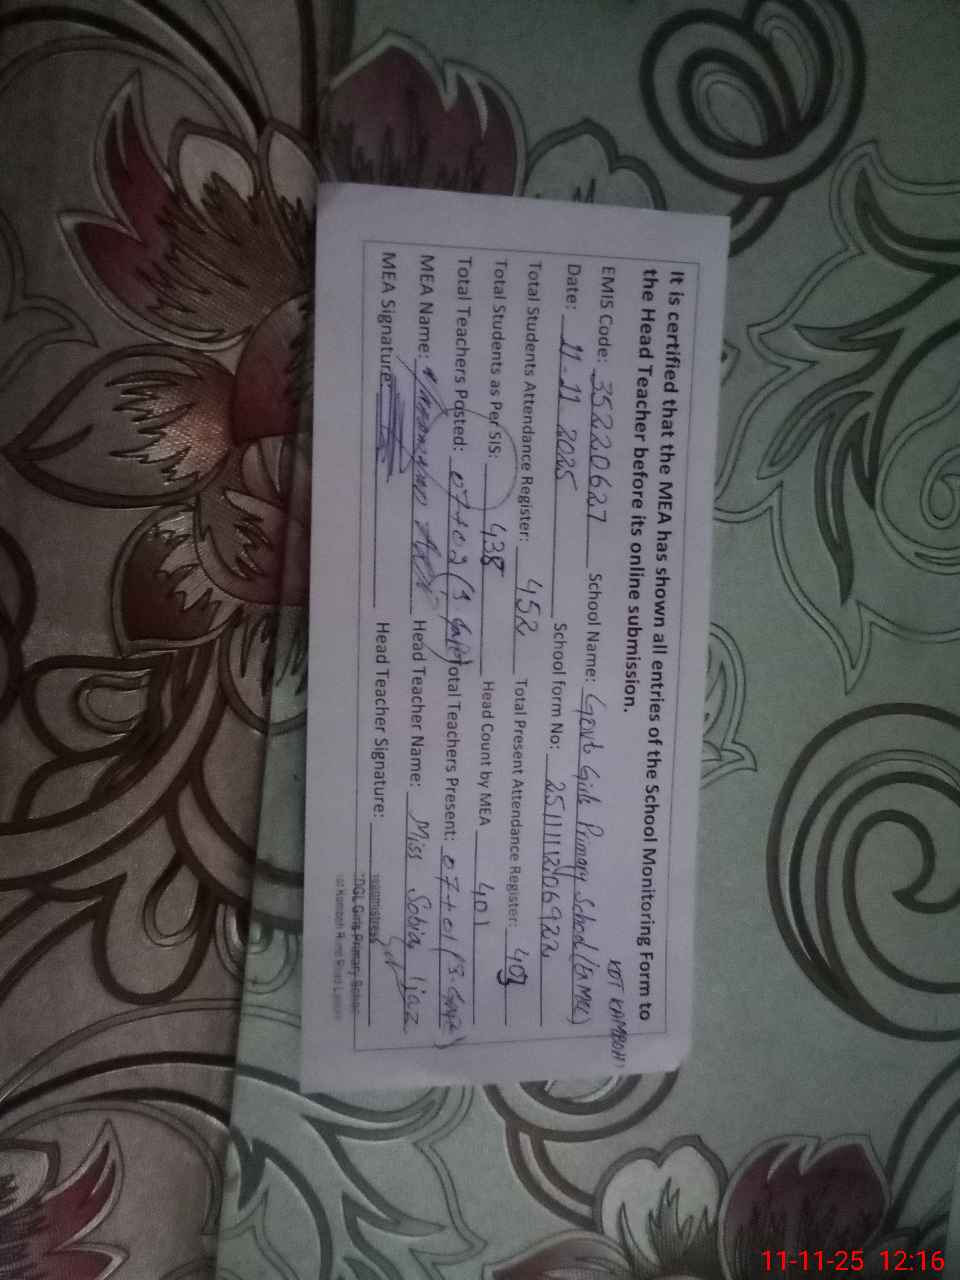 It is certified that the MEA has shown all entries of the School Monitoring Form to
the Head Teacher before its online submission.
KOT KAMBOH)
EMIS Code: 35220627 School Name: Govt Girls Primary School (
Date: 11-11 2025 School form No:
Total Students Attendance Register: 452 Total Present Attendance Register:
Total Students as Per SIS: 438 Head Count by MEA 401
Total Teachers Posted: 07+ Total Teachers Present: 07+01
MEA Name: Head Teacher Name: Miss Sobia Ijaz
MEA Signature: Head Teacher Signature:
Girls Primary School
Kamboh Road
11-11-25 12:16